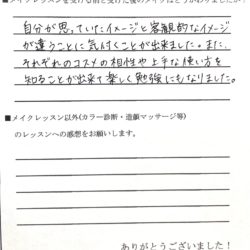 ■メイクレッスンを受ける前と受けた後のメイクはどう変わりましたか?
自分が思っていたイメージと客観的なイメージ
が違うことに気付くことが出来ました。また、
それぞれのコスメの相性や上手な使い方を
知ることが出来て楽しく勉強にもなりました。
■メイクレッスン以外(カラー診断・造顔マッサージ等)
のレッスンへの感想をお願いします。
ありがとうございました!